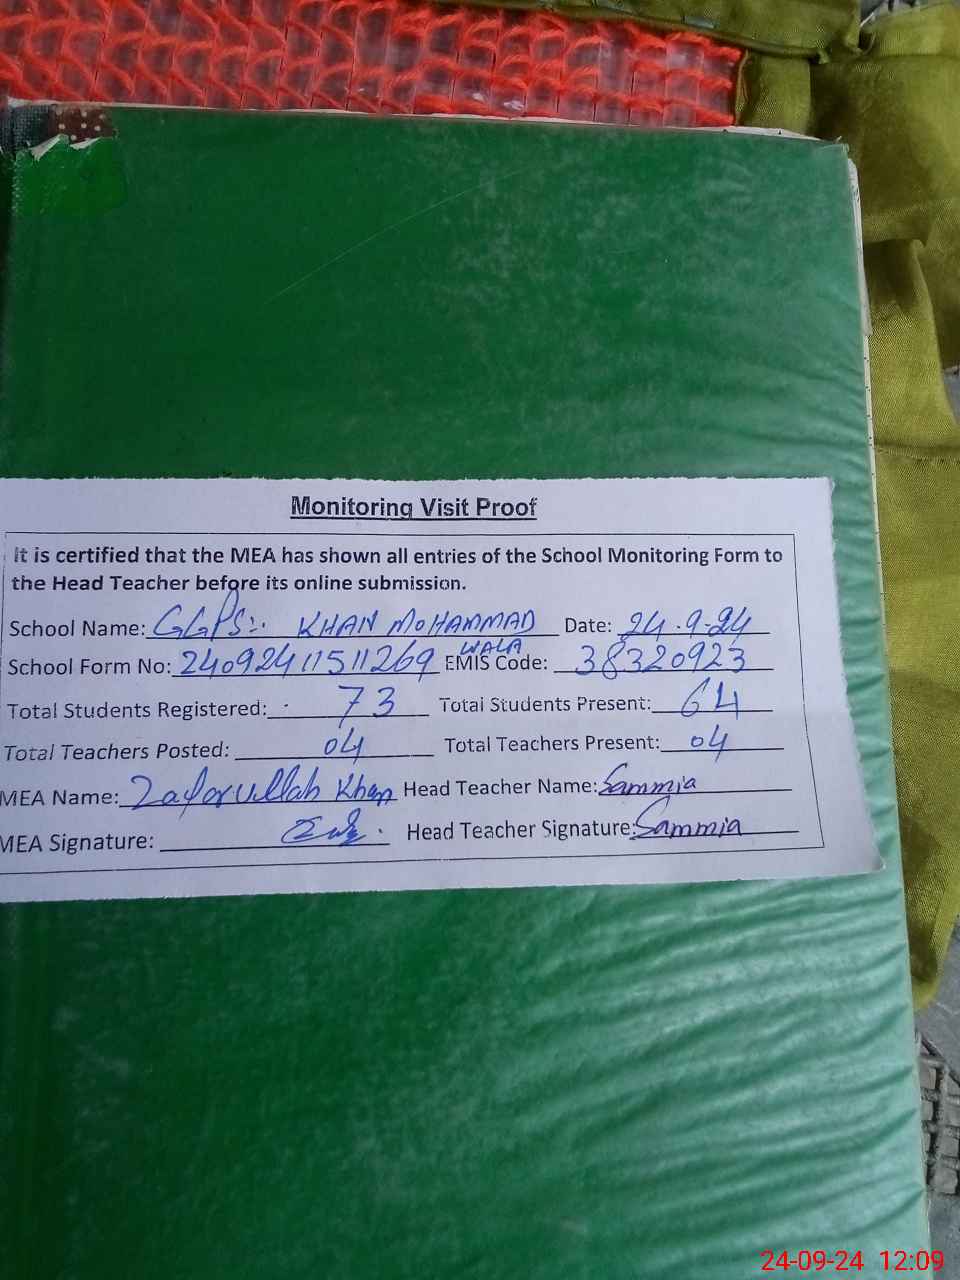 Monitoring Visit Proof
It is certified that the MEA has shown all entries of the School Monitoring Form to
the Head Teacher before its online submission.
School Name: GGPS:. KHAN MOHAMMAD WALA Date: 24.9.24
School Form No: 24092411511269 EMIS Code: 38320923
Total Students Registered: 73 Total Students Present: 64
Total Teachers Posted: 04 Total Teachers Present: 04
MEA Name: Zafarullah Khan Head Teacher Name: Sammia
MEA Signature: Head Teacher Signature: Sammia
24-09-24 12:09